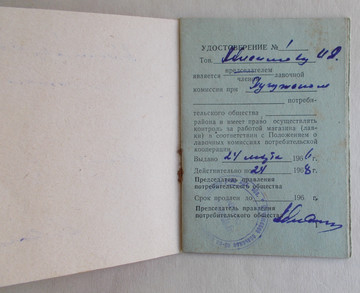 УДОСТОВЕРЕНИЕ № 1
Тов.
председателем
является лавочной
членом
комиссии при
потреби-
тельского общества
района и имеет право осуществлять
контроль за работой магазина (лав-
ки) в соответствии с Положением о
лавочных комиссиях потребительской
кооперации.
Выдано 24 марта 1966 г.
Действительно по 24 1968 г.
Председатель правления
потребительского общества
Срок продлен до 196 г.
Председатель правления
потребительского общества